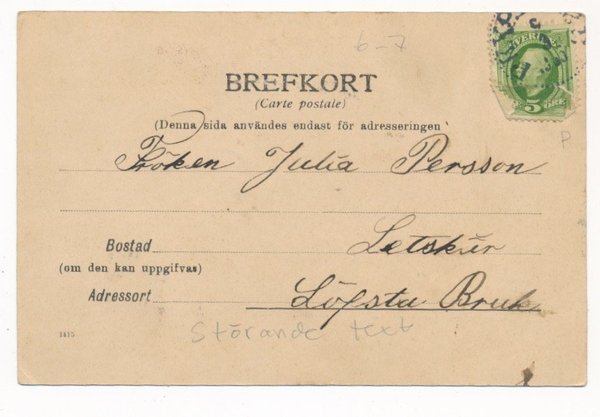 6-7
BREFKORT
(Carte postale)
SVERIGE
5 ÖRE
(Denna sida användes endast för adresseringen
P
Fröken Julia Persson
Bostad Letskär
(om den kan uppgifvas)
Adressort Löfsta Bruk
Störande text
1415